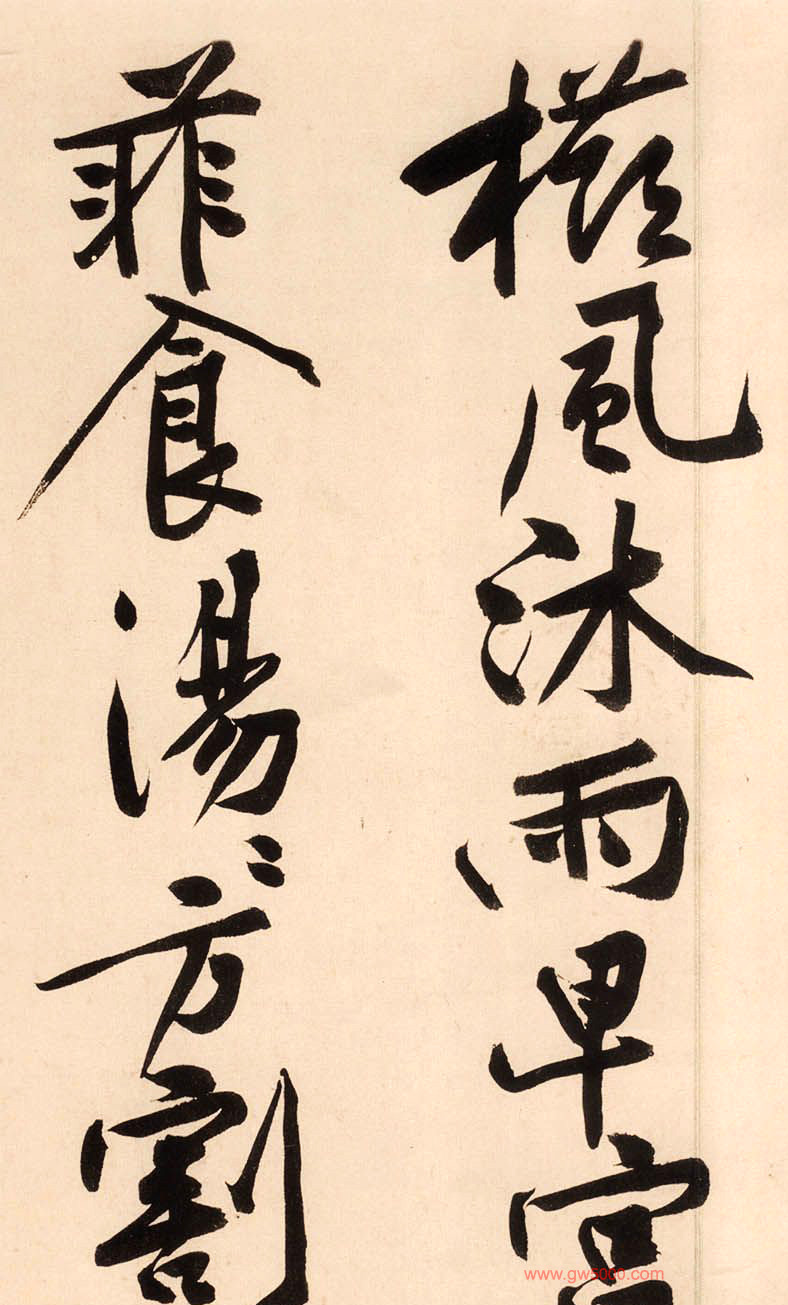 櫛風沐雨卑宮
菲食湯〻方割
www.gw5000.com